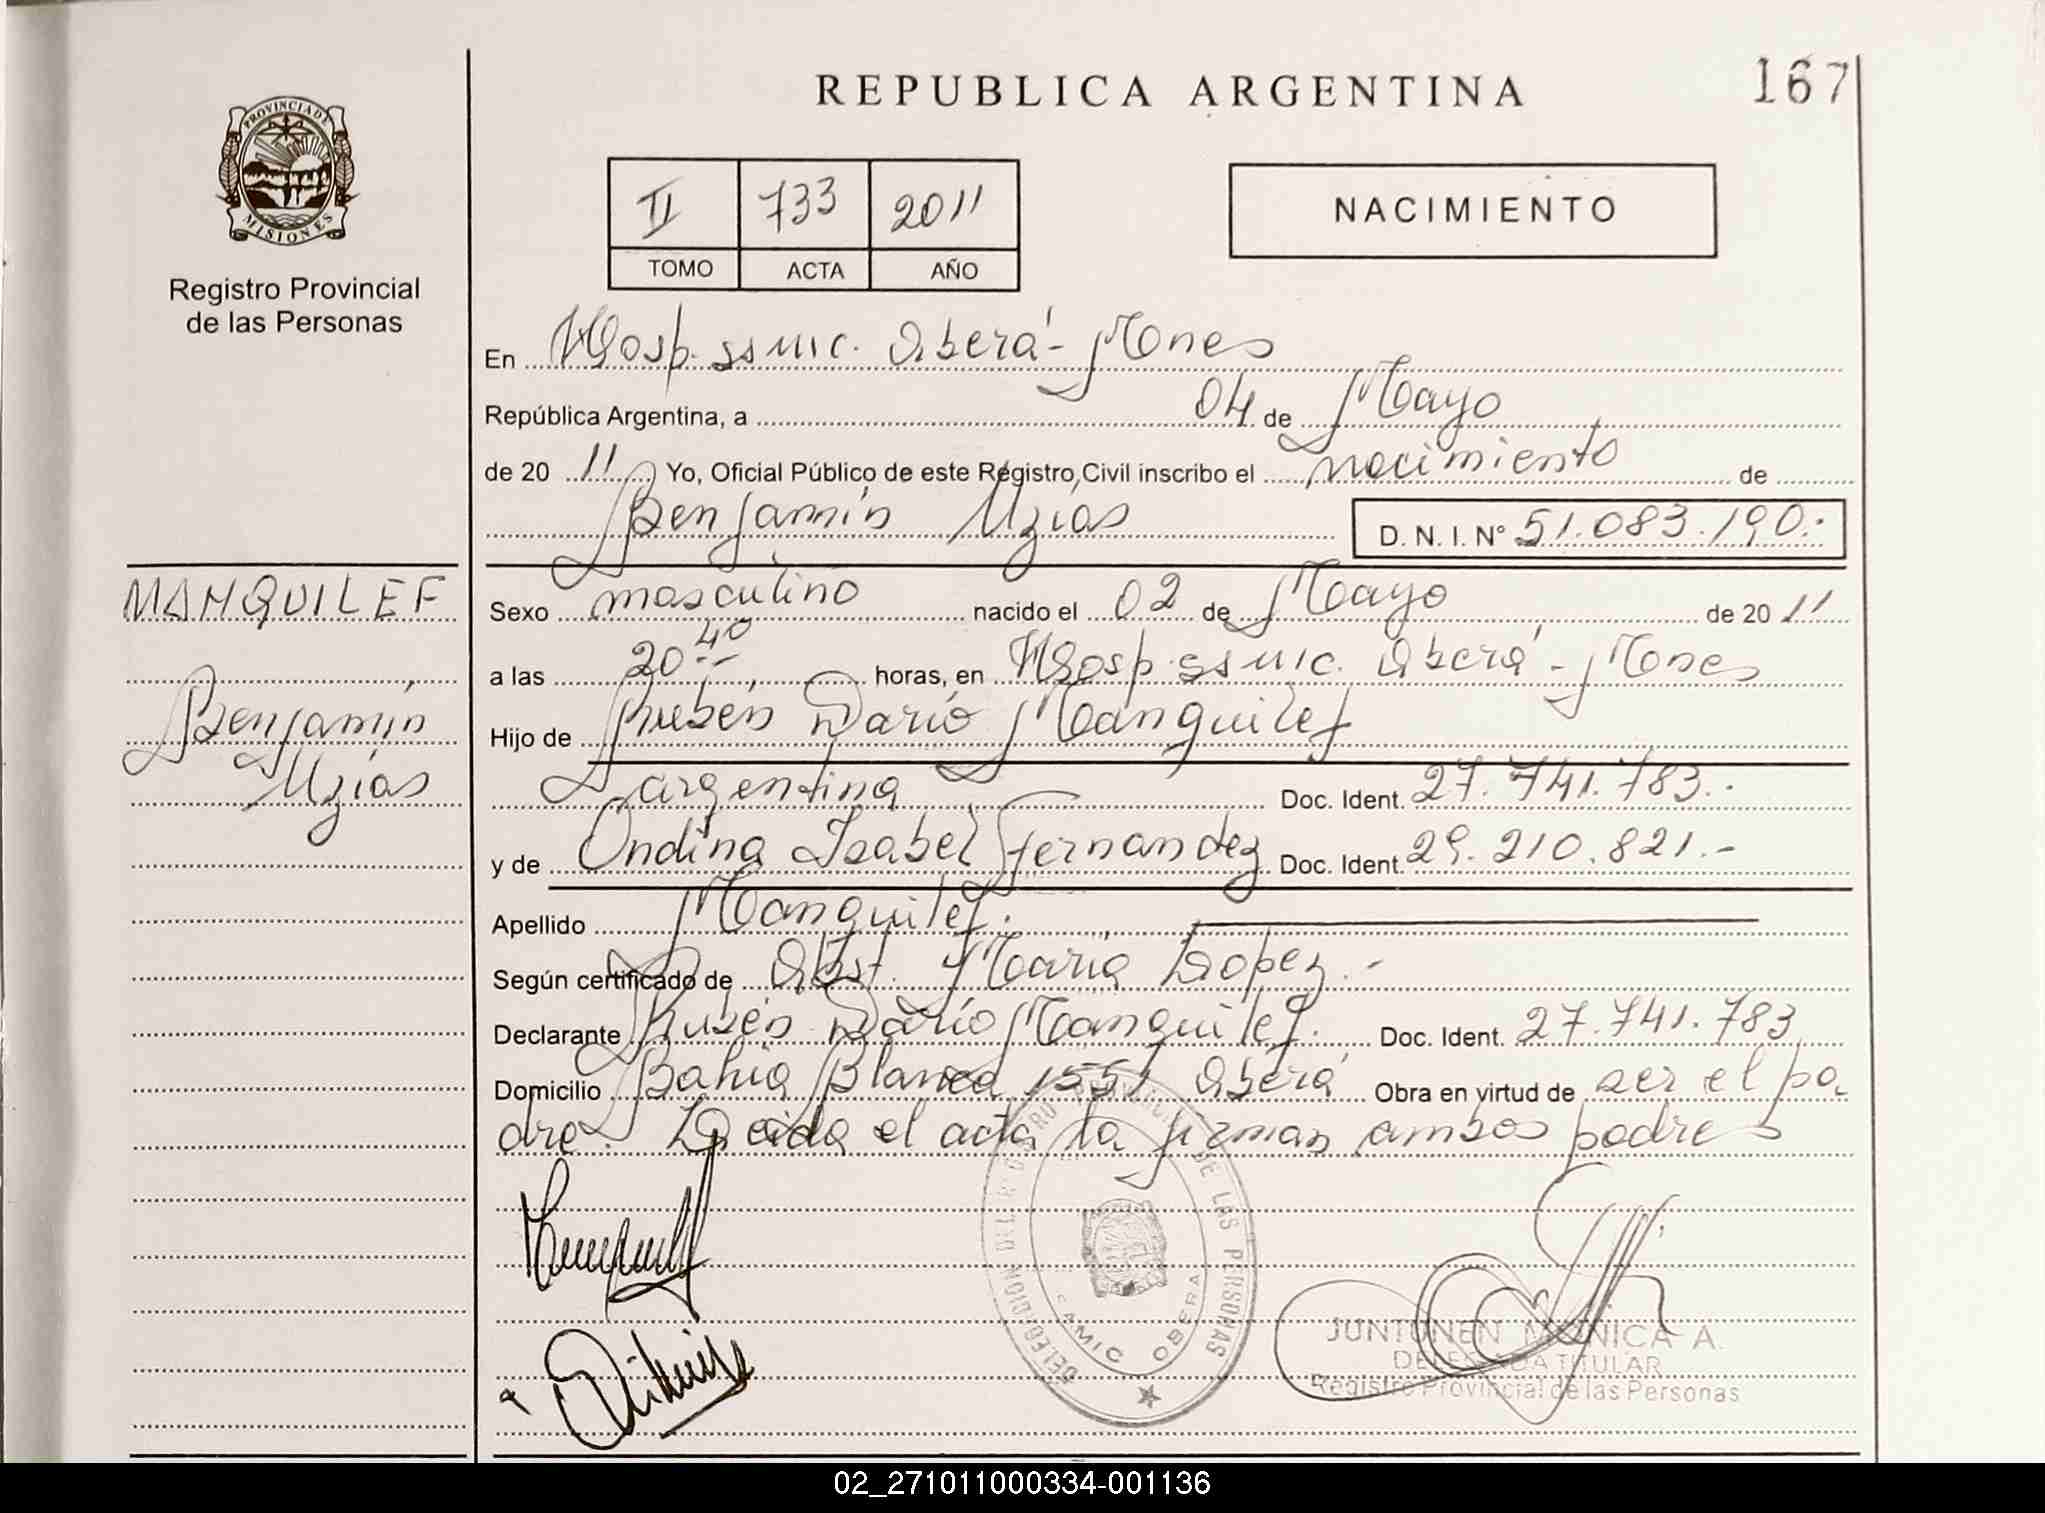 REPUBLICA ARGENTINA
167
PROVINCIA DE
MISIONES
Registro Provincial
de las Personas
II 733 2011
TOMO ACTA AÑO
NACIMIENTO
En Hosp. ss Mic. Oberá - Mones
República Argentina, a 04 de Mayo
de 20 11 Yo, Oficial Público de este Registro Civil inscribo el nacimiento de
Benjamín Uzías
D. N. I. N° 51.083.190.
MANQUILEF
Benjamín
Uzías
Sexo masculino nacido el 02 de Mayo de 20 11
a las 20 40 horas, en Hosp. ss Mic. Oberá - Mones
Hijo de Rubén Darío Manquilef
argentina Doc. Ident. 27.741.783.
y de Ondina Isabel Fernandez Doc. Ident. 29.210.821.-
Apellido Manquilef.
Según certificado de Obst. María Lopez.-
Declarante Rubén Darío Manquilef. Doc. Ident. 27.741.783
Domicilio Bahia Blanca 1551 Oberá Obra en virtud de ser el pa
dre. Leida el acta la firman ambos padres
DELEGACION DEL REGISTRO PROVINCIAL DE LAS PERSONAS
CAMIC OBERA
JUNTUNEN MONICA A.
DELEGADA TITULAR
Registro Provincial de las Personas
02_271011000334-001136